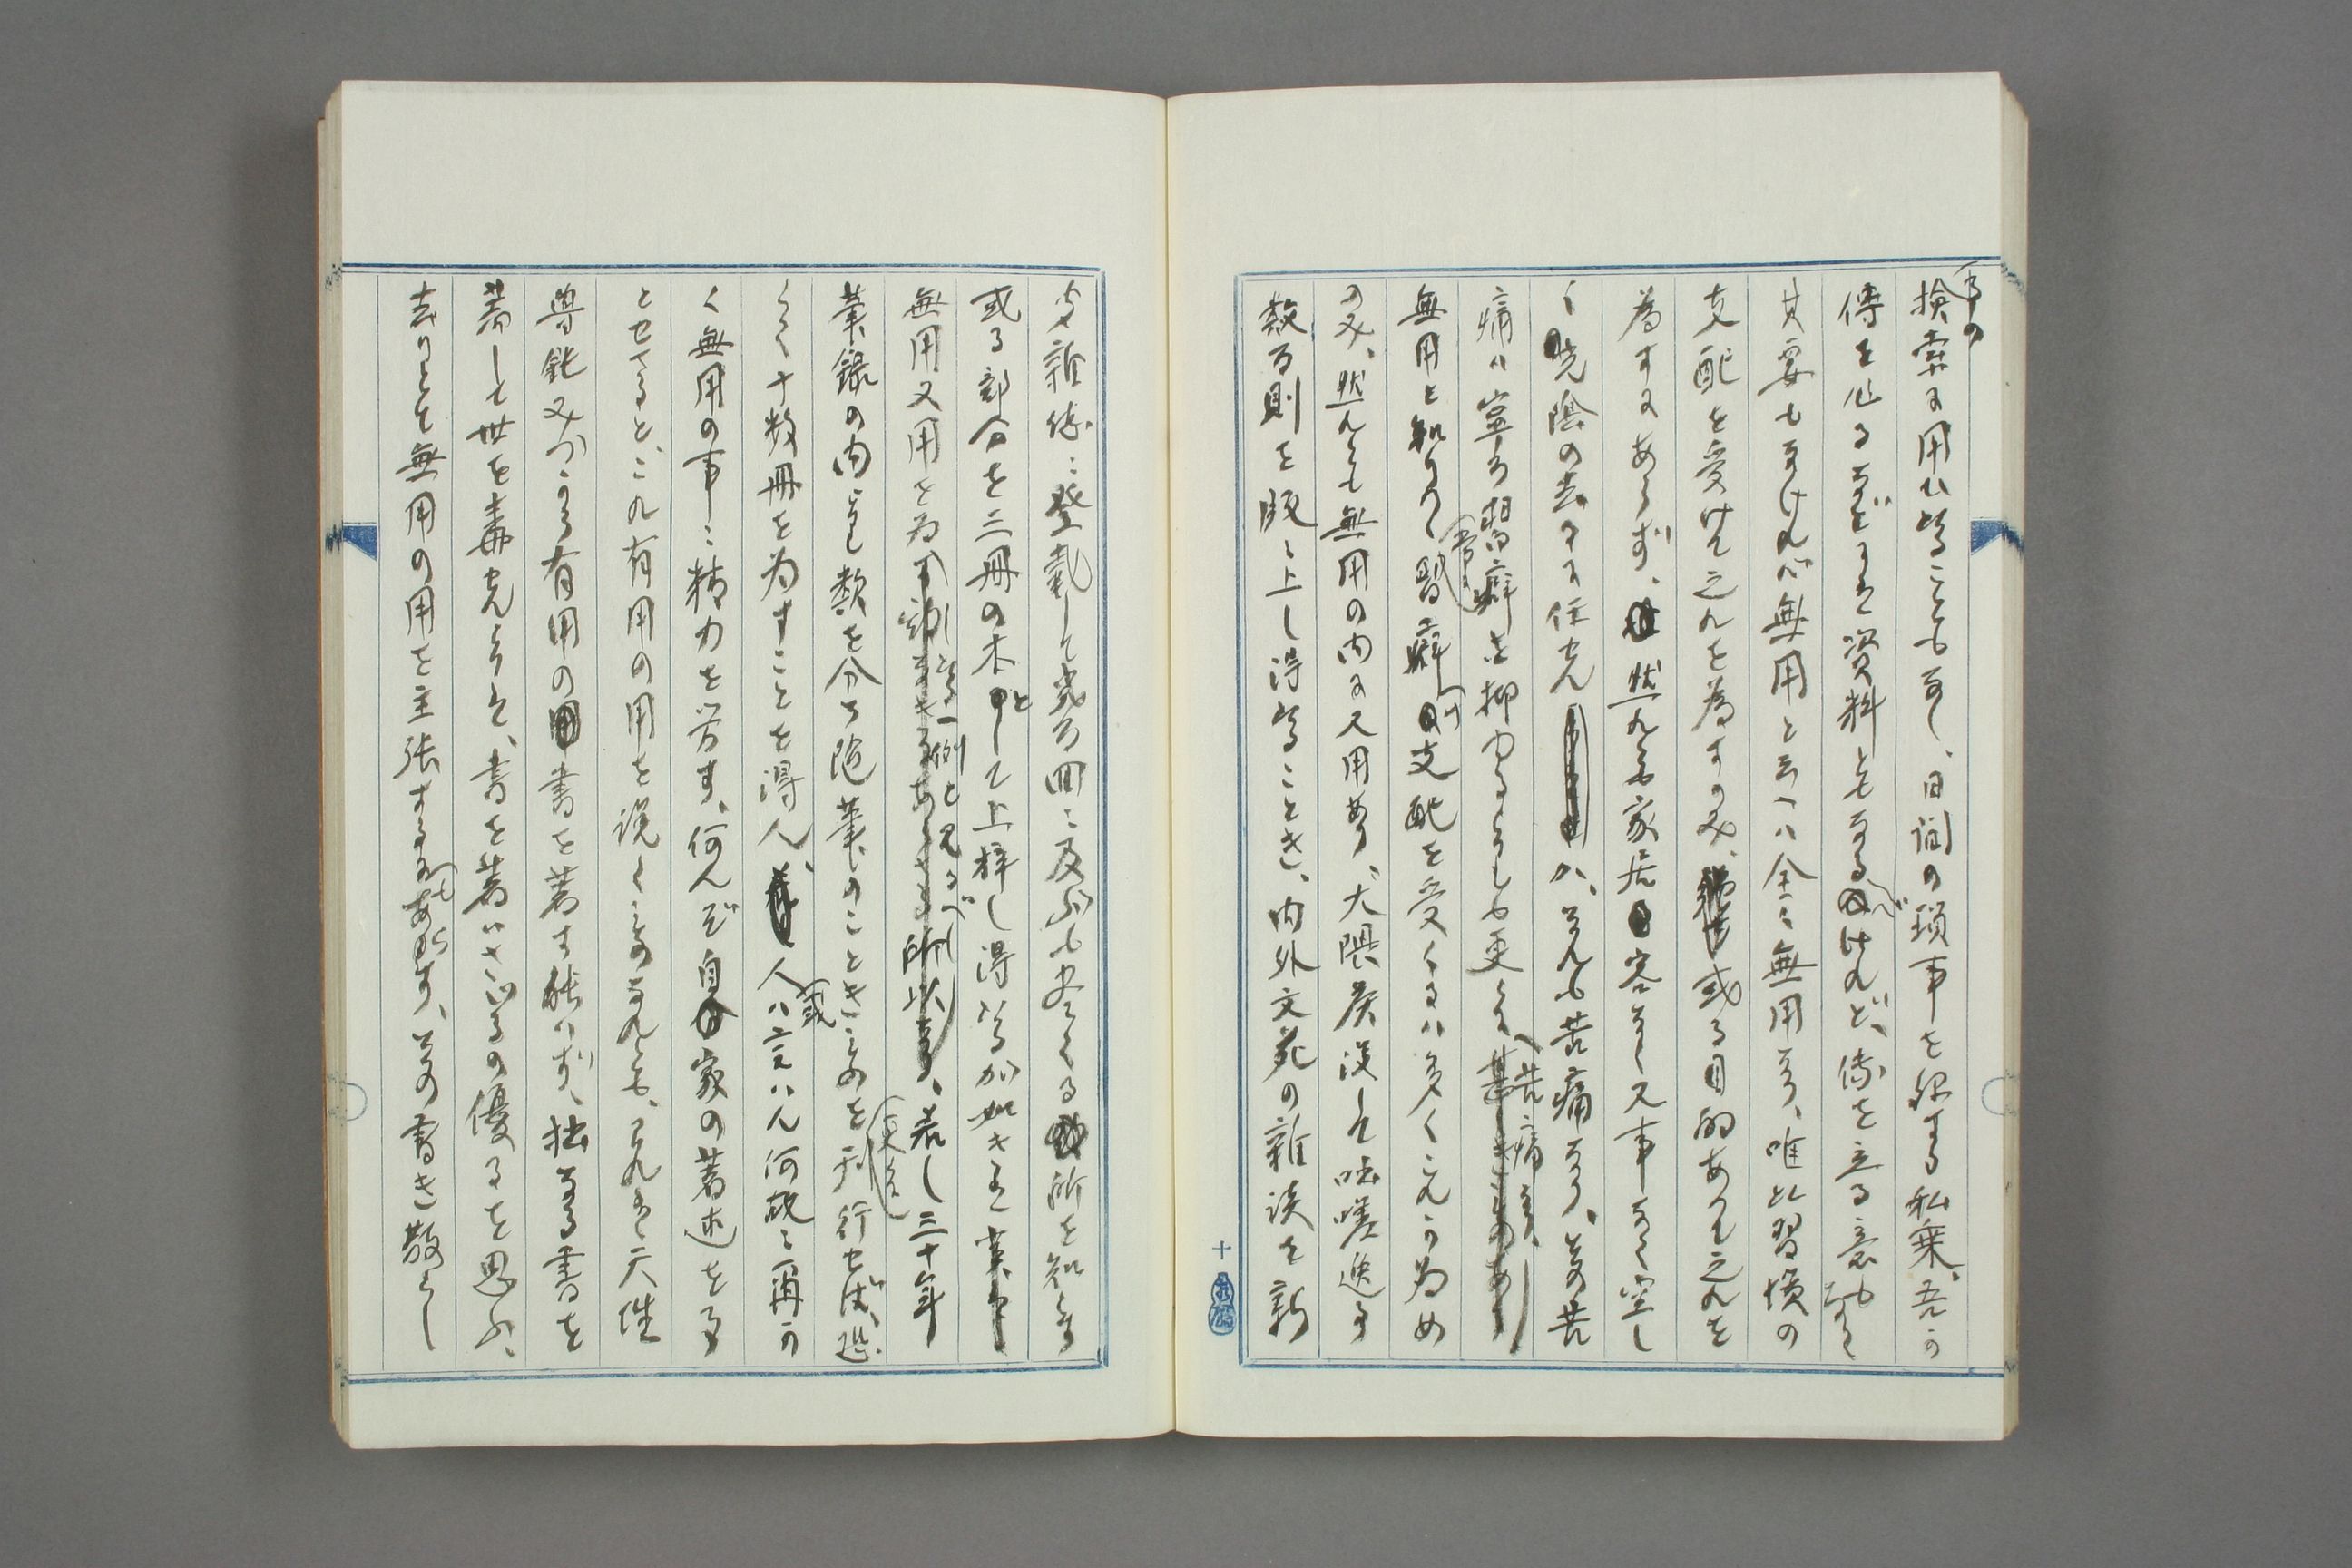 事の
検索に用ひ得ることもなし、日間の瑣事を録する私乗、吾の
傳を作るなどには資料ともなるべけれど、傳を立る意もなく
其要もなければ無用と云へバ全く無用なり、唯此習慣の
支配を受けて之れを為すのみ、或る目的ありて之れを
為すにあらず、然れども家居客なく又事なく空し
く光陰の去るに任せんか、それも苦痛なり、其の苦
痛ハ寧ろ習癖を抑ゆるよりも更に苦痛なり、
無用と知りつゝ習癖の支配を受くるハ多くこれが為め
のみ、然れども無用の内に又用あり、大隈侯薨して咄嗟追
数百則を版に上し得ることき、内外文苑の雑談を新
雑誌に登載して幾百回に及ぶも尽くる所を知らず
或る部分を二三冊の本として上梓し得るが如き是
無用又用を為す一例と見るべし、若し三十年
筆録の内より類を分ち随筆のことき、ものを刊行せば、恐
らく十数冊を為すことを得ん、人或ハ言ハん何故に爾か
く無用の事に精力を労す、何んぞ自家の著述を事
とせざると、これ有用の用を説くものなれども、これ天性
魯鈍又かゝる有用の書を著す能ハず、拙なる書を
著して世を毒せんよりは、書を著ハさゞるの優るを思ふ、
去りとて無用の用を主張するにもあらず、其の書き散らし
十